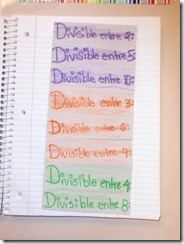 Divisible entre 2:
Divisible entre 5:
Divisible entre 10:
Divisible entre 3:
Divisible entre 6:
Divisible entre 9:
Divisible entre 4:
Divisible entre 8: